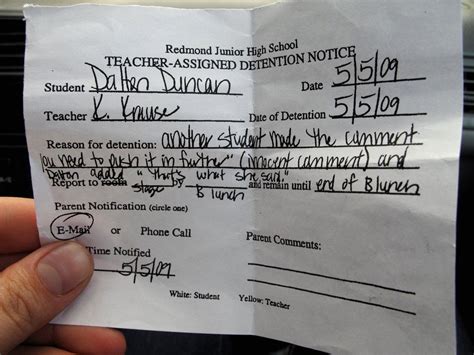 Redmond Junior High School
TEACHER-ASSIGNED DETENTION NOTICE
Student Dalton Duncan Date 5/5/09
Teacher K. Krause Date of Detention 5/5/09
Reason for detention: another student made the comment
"you need to push it in further" (innocent comment) and
Dalton added "that's what she said."
Report to room stage by B lunch and remain until end of B lunch
Parent Notification (circle one)
E-Mail or Phone Call Parent Comments:
Time Notified
5/5/09
White: Student Yellow: Teacher